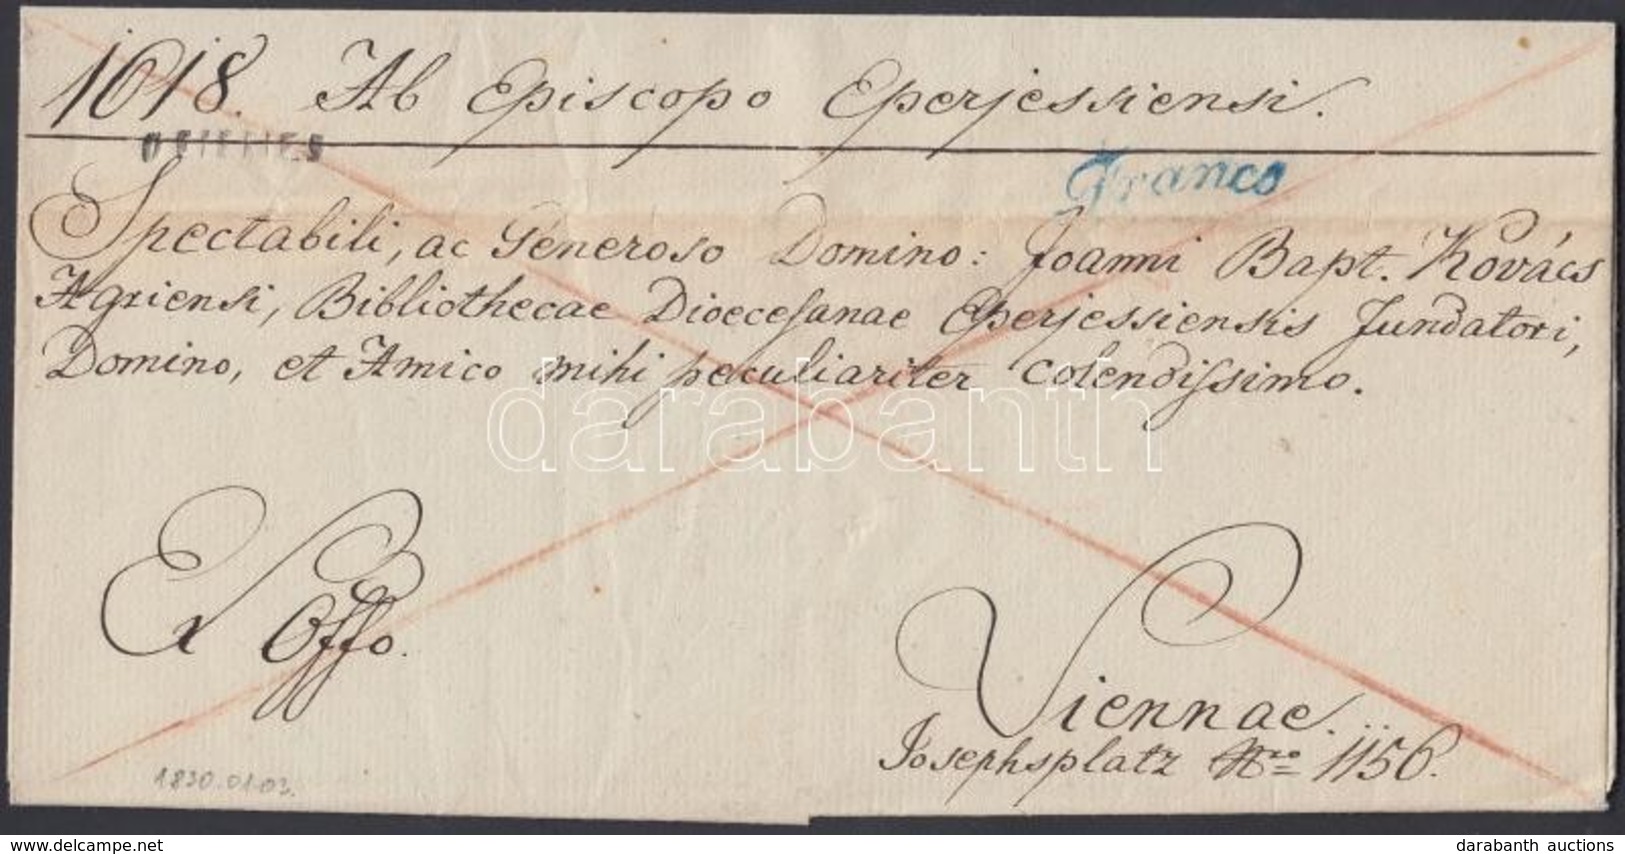 1618. Ab Episcopo Eperjessiensi.
Franco
Spectabili, ac Generoso Domino: Joanni Bapt. Kovács
Agriensi, Bibliothecae Dioecesanae Eperjessiensis Fundatori,
Domino, et Amico mihi peculiariter colendissimo.
darabanth
Ex Offo.
Viennae.
Josephsplatz Nro 1156.
1830.01.03.
delcampe.net
darabanth auctions